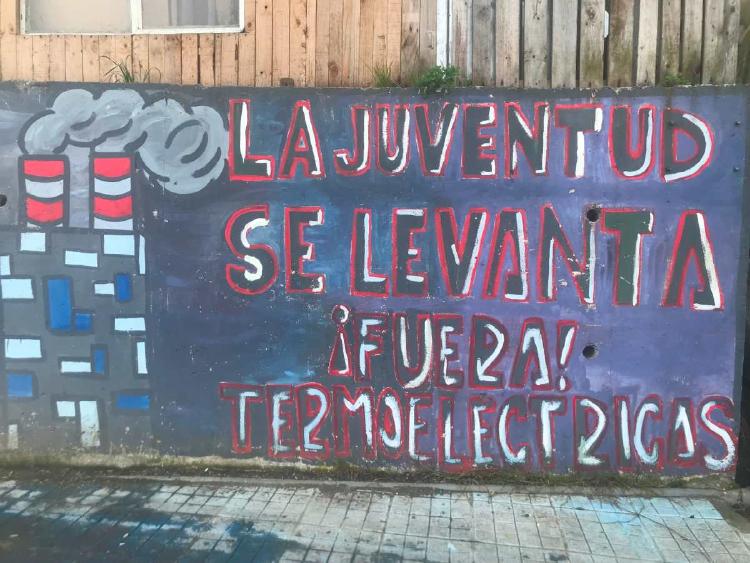 LA JUVENTUD
SE LEVANTA
¡FUERA!
TERMOELECTRICAS